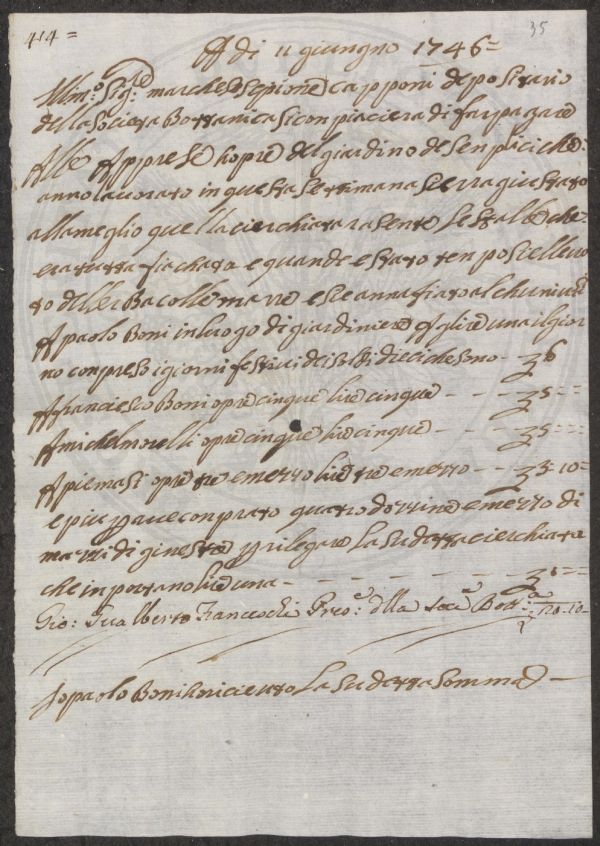 414=
35
A di 11 giungno 1746=
Illmo: Sig:re marchese sepione capponi depositario
della società Bottanica si conpiaciera di far pagare
Alle Appresè hopre del giardino de senpici che:
anno lavorato in questa settimana si e ra giustato
alla meglio quella cierchiata rasente le stalle che
era tutta fiachata e quande e stato tenpo sellevu
to delle Bacolle marre e si e annafiato al chuniuo
A paolo Boni in luogo di giardiniere A lire una il gior
no conpreso i giorni festivi dei soldi dieci che sono - ʒ 6
A franciesco Boni opre cinque lire cinque - - - ʒ 5 = =
A michel morelli opre cinque lire cinque - - - ʒ 5 = =
A pie masi opre tre e mezzo lire tre e mezzo - - ʒ 3-10=
e piu p avere conprato quatro dozzine e mezzo di
mazzi di ginestre p rilegare la sudetta cierchiata
che inportano lire una - - - - - - ʒ 1 = =
Gio: Gualberto Franceschi Preo: dlla Socà Bota: 20-10-
Io paolo Boni ho riceuto la sudetta somma